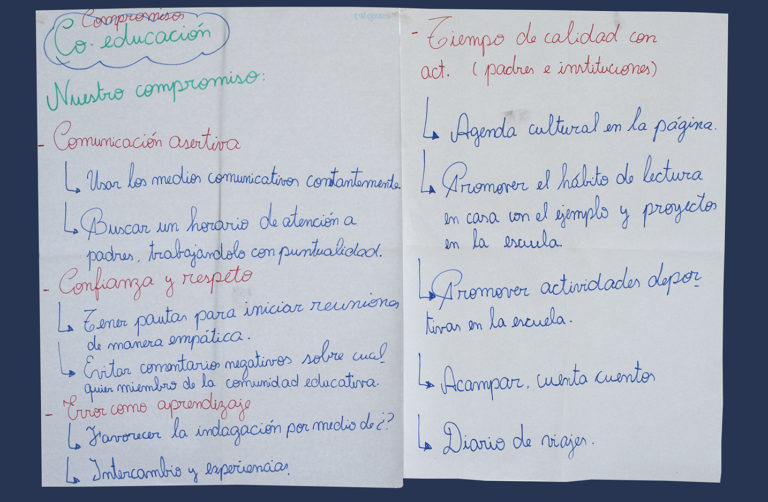 Compromisos
Co-educación
Nuestro compromiso:
- Comunicación asertiva
↳ Usar los medios comunicativos constantemente
↳ Buscar un horario de atención a
padres, trabajándolo con puntualidad.
- Confianza y respeto
↳ Tener pautas para iniciar reuniones
de manera empática.
↳ Evitar comentarios negativos sobre cual
quier miembro de la comunidad educativa.
- Error como aprendizaje
↳ Favorecer la indagación por medio de ¿?
↳ Intercambio y experiencias.
- Tiempo de calidad con
act. (padres e instituciones)
↳ Agenda cultural en la página.
↳ Promover el hábito de lectura
en casa con el ejemplo y proyectos
en la escuela.
↳ Promover actividades depor-
tivas en la escuela.
↳ Acampar, cuenta cuentos
↳ Diario de viajes.